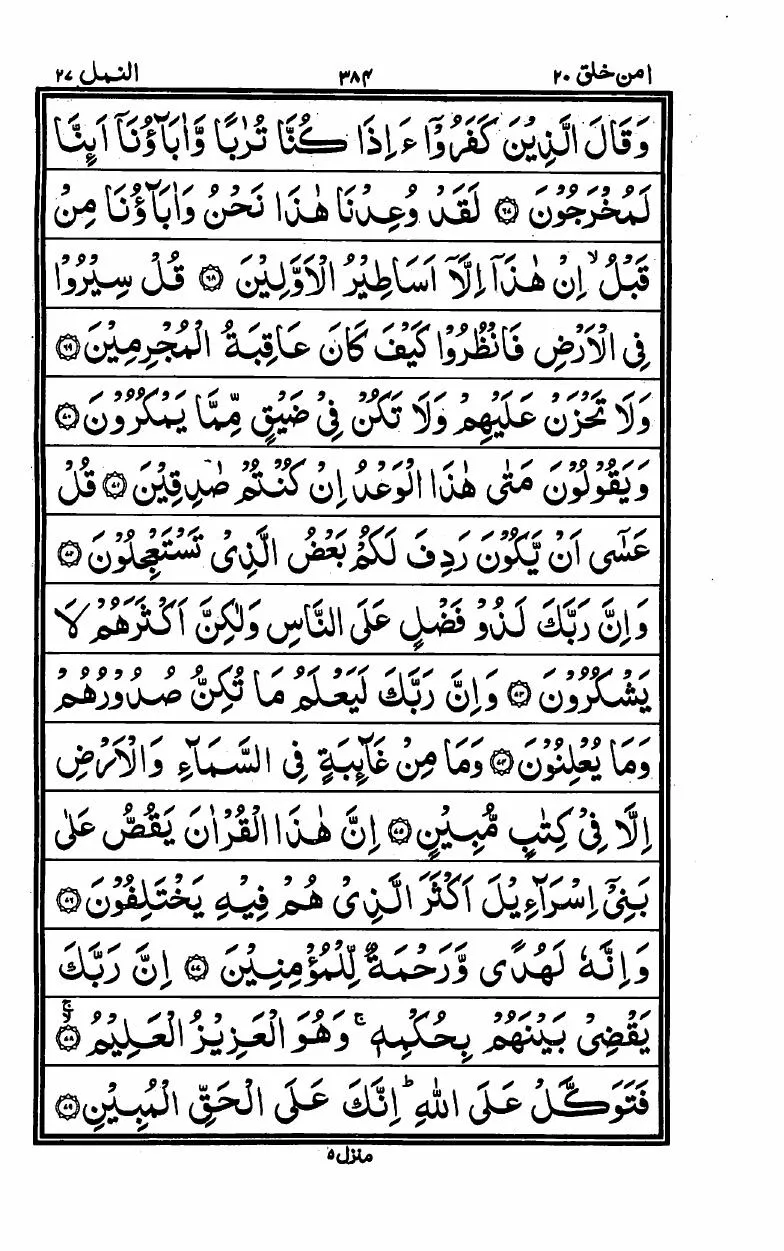 امن خلق ۲۰ ۳۸۴ النمل ۲۷
وَقَالَ الَّذِيْنَ كَفَرُوْۤا ءَاِذَا كُنَّا تُرٰبًا وَّاٰبَآؤُنَاۤ اَىِٕنَّا
لَمُخْرَجُوْنَ ۝۶۷ لَقَدْ وُعِدْنَا هٰذَا نَحْنُ وَاٰبَآؤُنَا مِنْ
قَبْلُ ۙ اِنْ هٰذَاۤ اِلَّاۤ اَسَاطِيْرُ الْاَوَّلِيْنَ ۝۶۸ قُلْ سِيْرُوْا
فِى الْاَرْضِ فَانْظُرُوْا كَيْفَ كَانَ عَاقِبَةُ الْمُجْرِمِيْنَ ۝۶۹
وَلَا تَحْزَنْ عَلَيْهِمْ وَلَا تَكُنْ فِىْ ضَيْقٍ مِّمَّا يَمْكُرُوْنَ ۝۷۰
وَيَقُوْلُوْنَ مَتٰى هٰذَا الْوَعْدُ اِنْ كُنْتُمْ صٰدِقِيْنَ ۝۷۱ قُلْ
عَسٰۤى اَنْ يَّكُوْنَ رَدِفَ لَكُمْ بَعْضُ الَّذِىْ تَسْتَعْجِلُوْنَ ۝۷۲
وَاِنَّ رَبَّكَ لَذُوْ فَضْلٍ عَلَى النَّاسِ وَلٰكِنَّ اَكْثَرَهُمْ لَا
يَشْكُرُوْنَ ۝۷۳ وَاِنَّ رَبَّكَ لَيَعْلَمُ مَا تُكِنُّ صُدُوْرُهُمْ
وَمَا يُعْلِنُوْنَ ۝۷۴ وَمَا مِنْ غَآىِٕبَةٍ فِى السَّمَآءِ وَالْاَرْضِ
اِلَّا فِىْ كِتٰبٍ مُّبِيْنٍ ۝۷۵ اِنَّ هٰذَا الْقُرْاٰنَ يَقُصُّ عَلٰى
بَنِىْۤ اِسْرَآءِيْلَ اَكْثَرَ الَّذِىْ هُمْ فِيْهِ يَخْتَلِفُوْنَ ۝۷۶
وَاِنَّهٗ لَهُدًى وَّرَحْمَةٌ لِّلْمُؤْمِنِيْنَ ۝۷۷ اِنَّ رَبَّكَ
يَقْضِىْ بَيْنَهُمْ بِحُكْمِهٖ ۚ وَهُوَ الْعَزِيْزُ الْعَلِيْمُ ۝۷۸
فَتَوَكَّلْ عَلَى اللّٰهِ ؕ اِنَّكَ عَلَى الْحَقِّ الْمُبِيْنِ ۝۷۹
منزل ۵